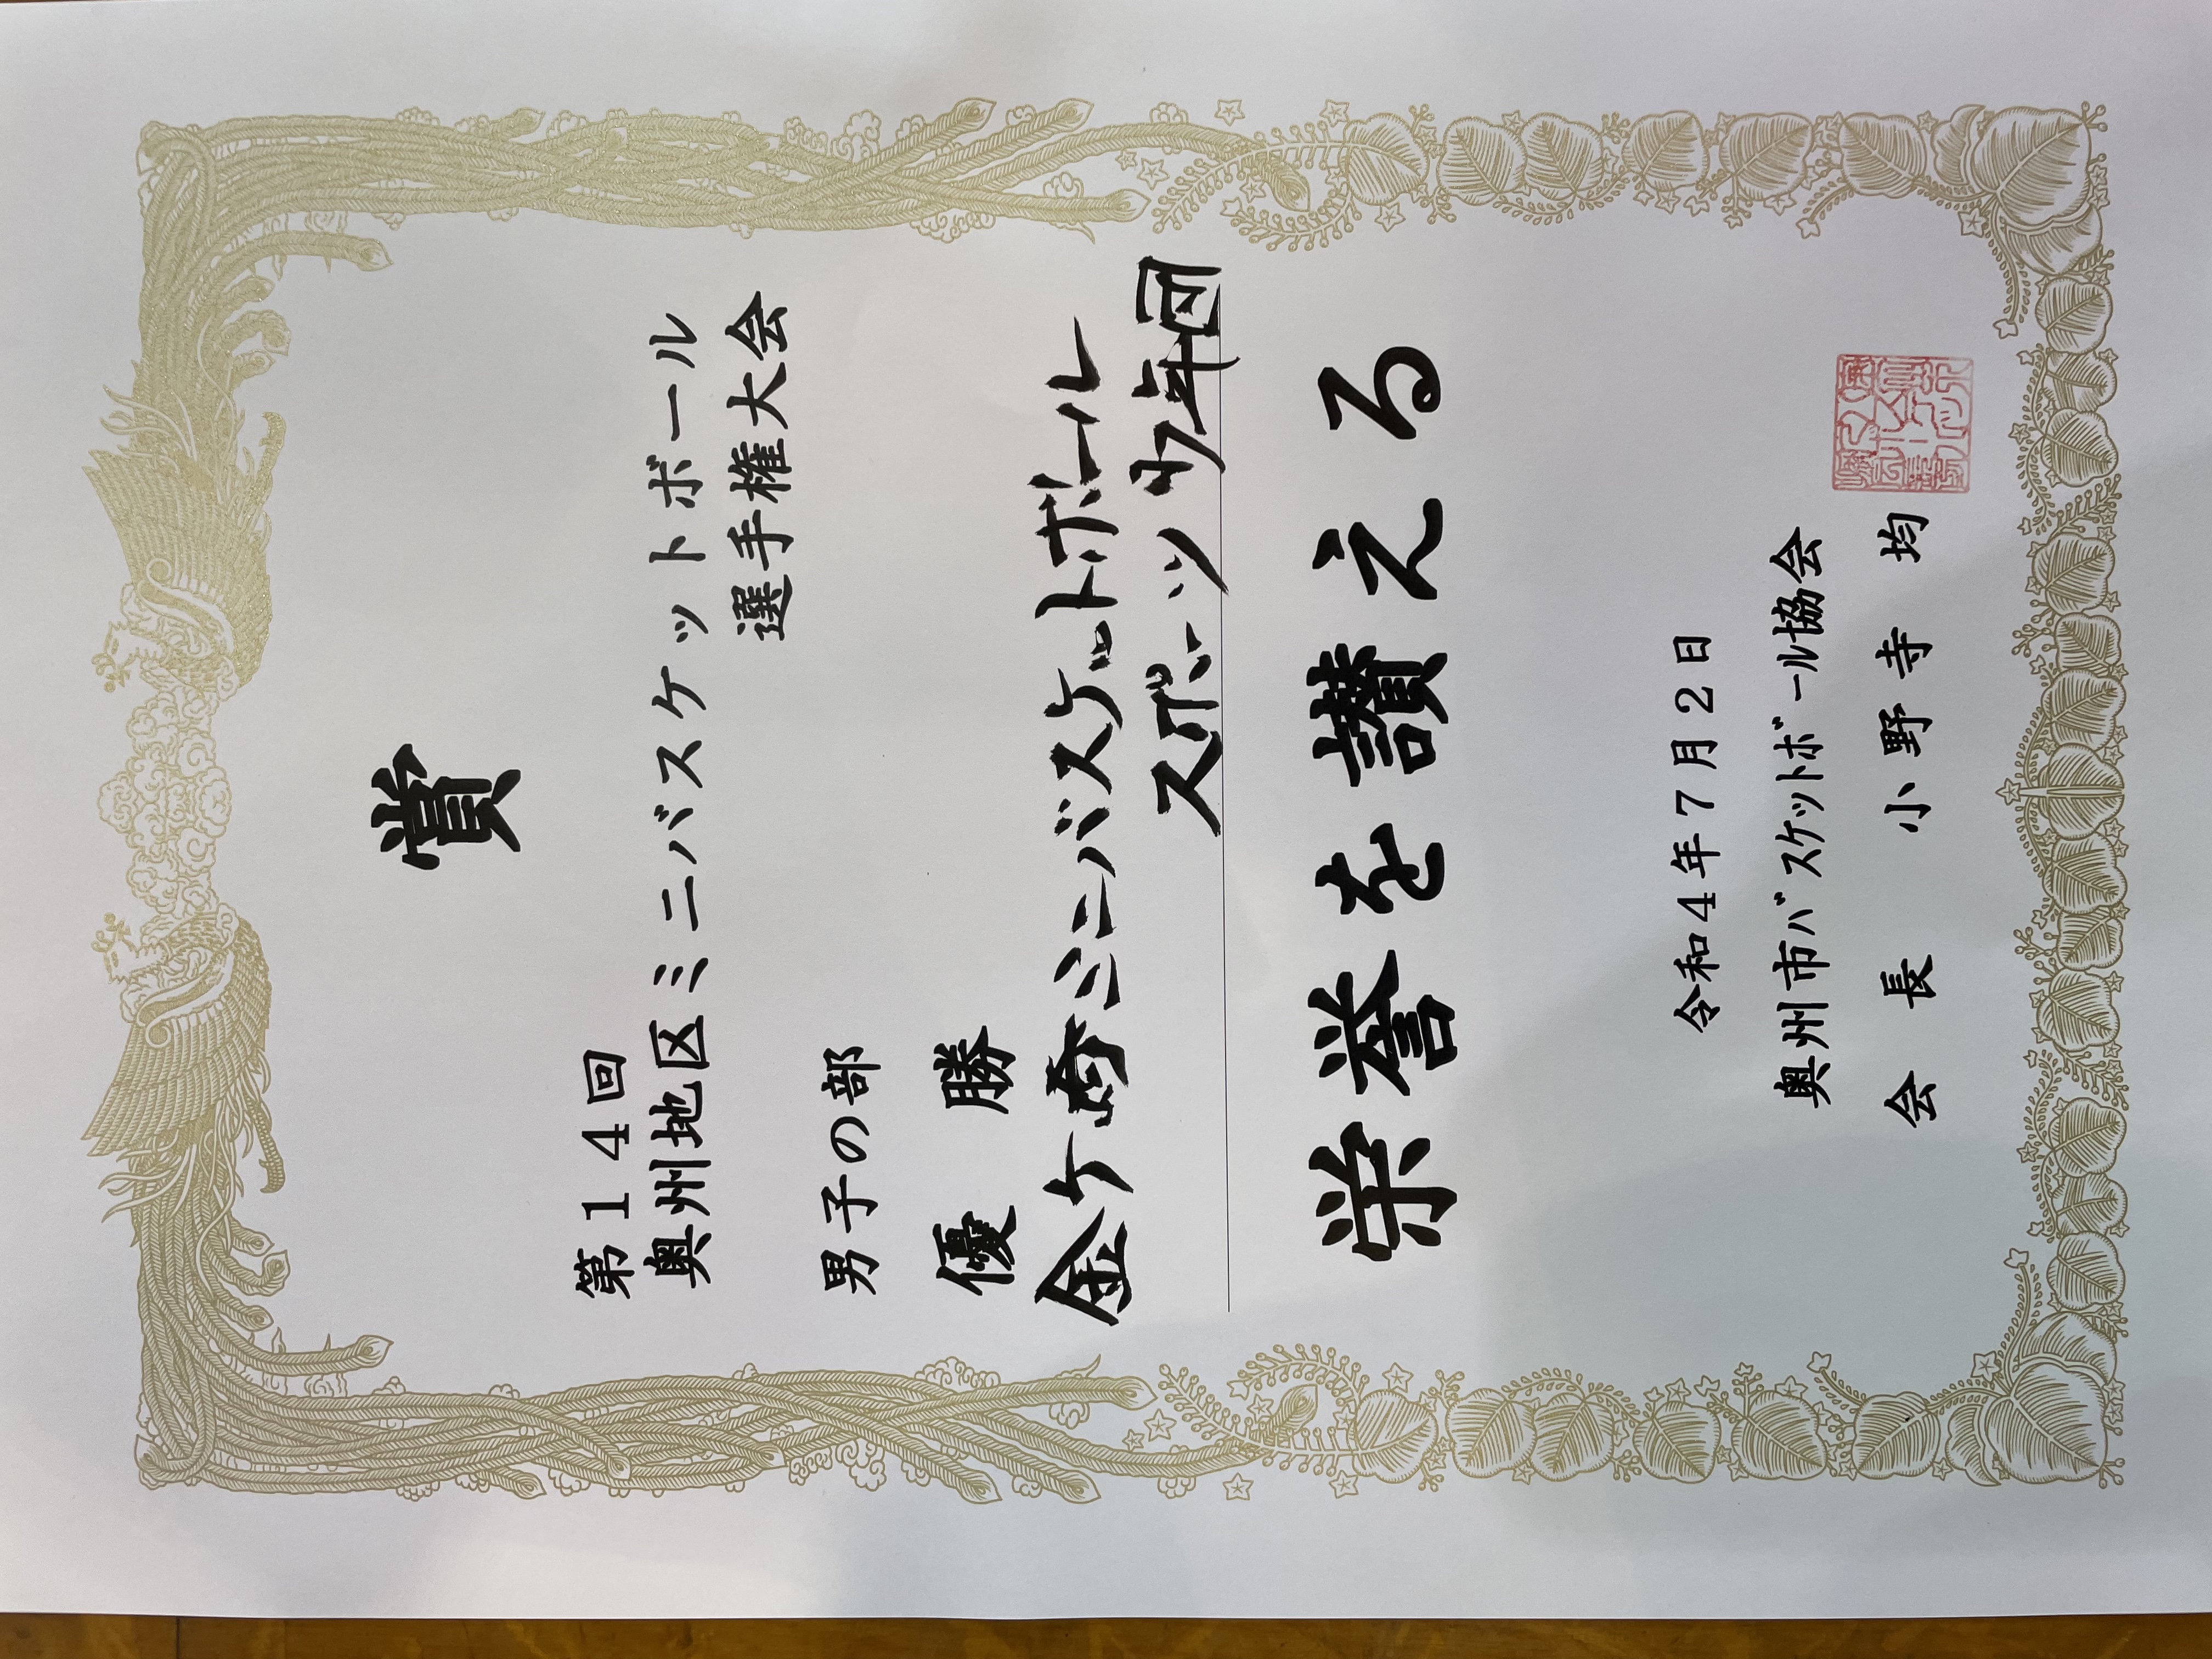 賞
第１４回
奥州地区ミニバスケットボール
選手権大会
男子の部
優　勝
金ケ崎ミニバスケットボール
スポーツ少年団
栄誉を讃える
令和４年７月２日
奥州市ﾊﾞｽｹｯﾄﾎﾞｰﾙ協会
会　長　　小野寺　均